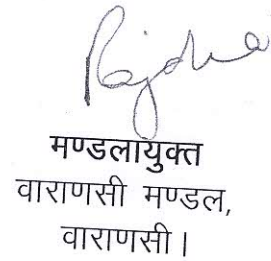 मण्डलायुक्त
वाराणसी मण्डल,
वाराणसी।